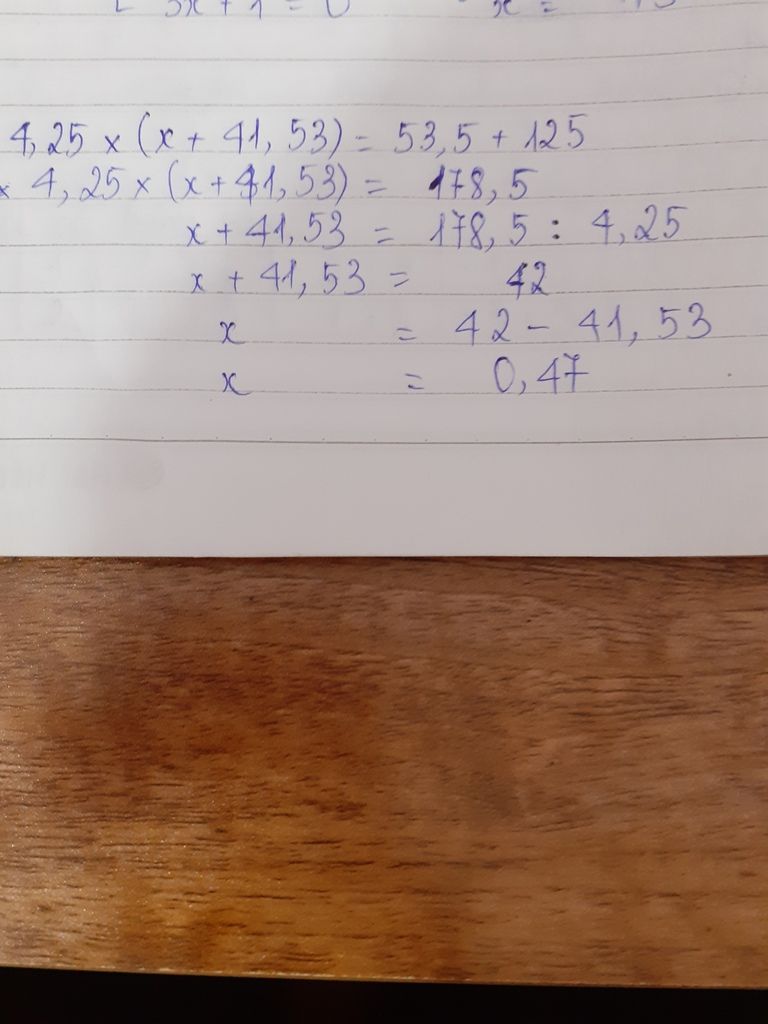 4,25 × (x + 41,53) = 53,5 + 125
× 4,25 × (x + 41,53) = 178,5
x + 41,53 = 178,5 : 4,25
x + 41,53 = 42
x = 42 - 41,53
x = 0,47